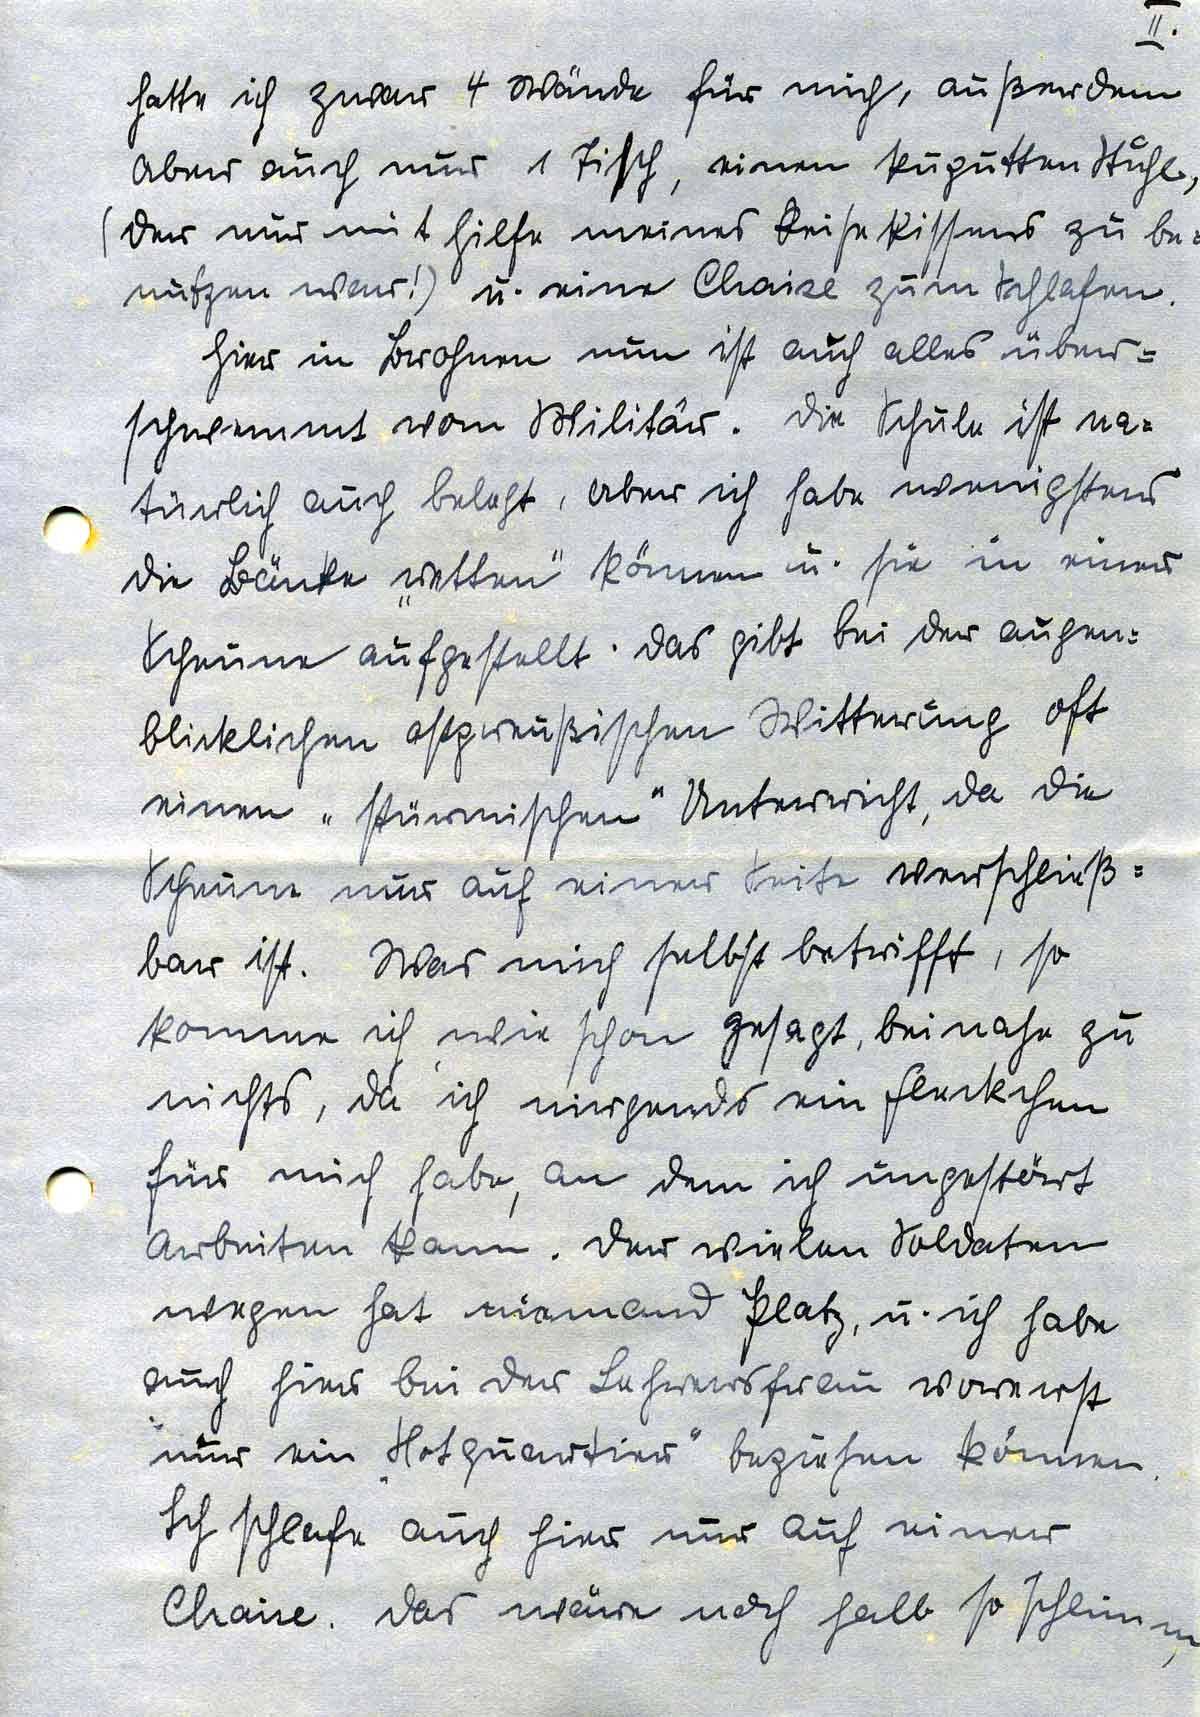 II.
hatte ich zwar 4 Wände für mich, außerdem
aber auch nur 1 Tisch, einen kaputten Stuhl,
(der nur mit Hilfe meines Reisekissens zu be=
nutzen war!) u. eine Chaise zum Schlafen.
Hier in Brohnen nun ist auch alles über=
schwemmt vom Militär. Die Schule ist na=
türlich auch belegt, aber ich habe wenigstens
die Bänke „retten" können u. sie in einer
Scheune aufgestellt. Das gibt bei der augen=
blicklichen ostpreußischen Witterung oft
einen „stürmischen" Unterricht, da die
Scheune nur auf einer Seite verschließ=
bar ist. Was mich selbst betrifft, so
komme ich, wie schon gesagt, beinahe zu
nichts, da ich nirgends ein Fleckchen
für mich habe, an dem ich ungestört
arbeiten kann. Der vielen Soldaten
wegen hat niemand Platz, u. ich habe
auch hier bei der Lehrersfrau vorerst
nur ein „Notquartier" beziehen können.
Ich schlafe auch hier nur auf einer
Chaise. Das wäre noch halb so schlimm,